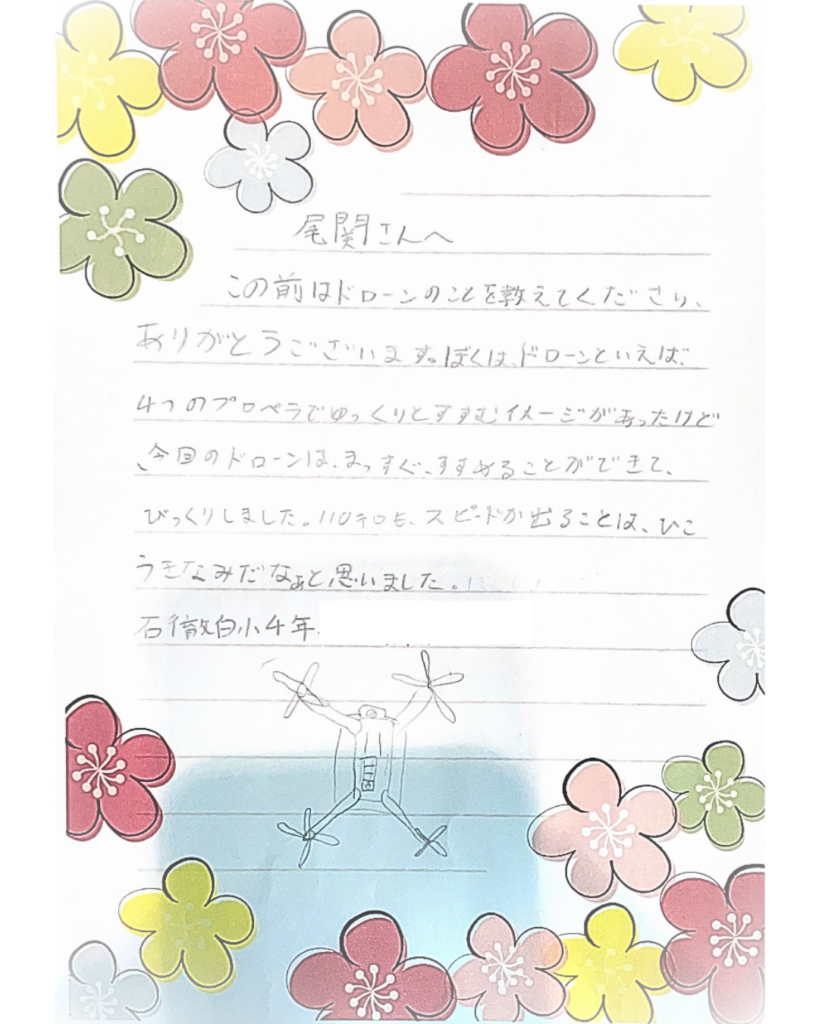 尾関さんへ
この前はドローンのことを教えてくださり、
ありがとうございます。ぼくは、ドローンといえば、
4つのプロペラでゆっくりとすすむイメージがあったけど
今回のドローンは、まっすぐ、すすめることができて、
びっくりしました。110キロも、スピードが出ることは、ひこ
うきなみだなぁと思いました。
石徹白小4年